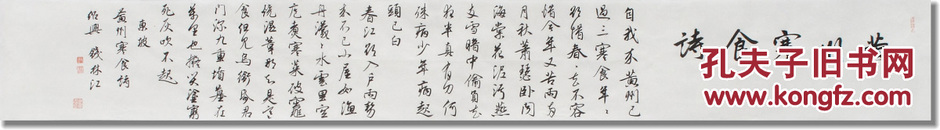 黄州寒食詩
自我来黄州已
過三寒食年年
欲惜春春去不容
惜今年又苦雨两
月秋蕭瑟卧聞
海棠花泥污燕
支雪暗中偷負去
夜半真有力何
殊病少年病起
頭已白
春江欲入户雨勢
来不已小屋如漁
舟濛濛水雲里空
庖煮寒菜破竈
燒濕葦那知是寒
食但見烏銜紙君
門深九重墳墓在
萬里也擬哭塗窮
死灰吹不起
東坡
黄州寒食詩
紹興 錢林江
孔夫子旧书网
www.kongfz.com